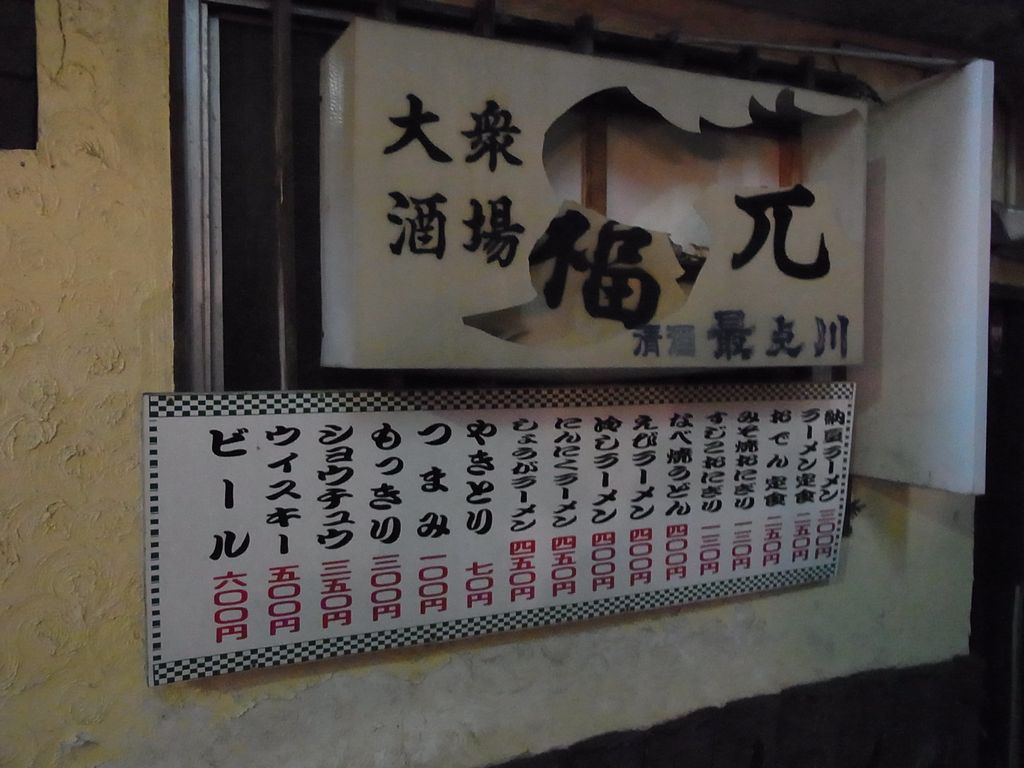 大衆
酒場
福元
清酒 最上川
ラーメン 
ラーメン定食 二五〇円
おでん定食 二五〇円
みそ焼おにぎり 一三〇円
すじこおにぎり 一三〇円
なべ焼うどん 四〇〇円
えびラーメン 四〇〇円
冷しラーメン 四〇〇円
にんにくラーメン 四五〇円
しょうがラーメン 四五〇円
やきとり 七〇円
つまみ 一〇〇円
もっきり 三〇〇円
ショウチュウ 三五〇円
ウイスキー 五〇〇円
ビール 六〇〇円